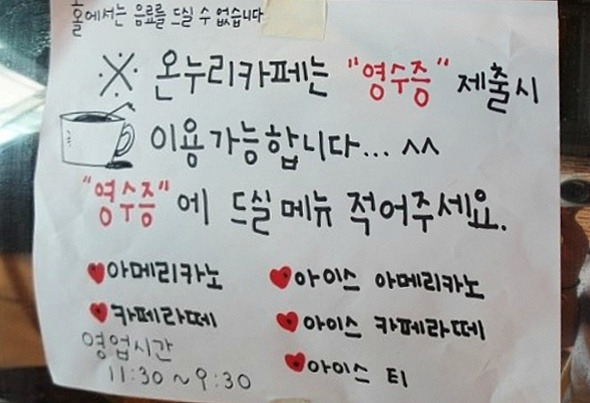 홀에서는 음료를 드실 수 없습니다
※ 온누리카페는 "영수증" 제출시
이용가능합니다... ^^
"영수증"에 드실메뉴 적어주세요.
♥아메리카노 ♥아이스 아메리카노
♥카페라떼 ♥아이스 카페라떼
영업시간 ♥아이스 티
11:30~9:30